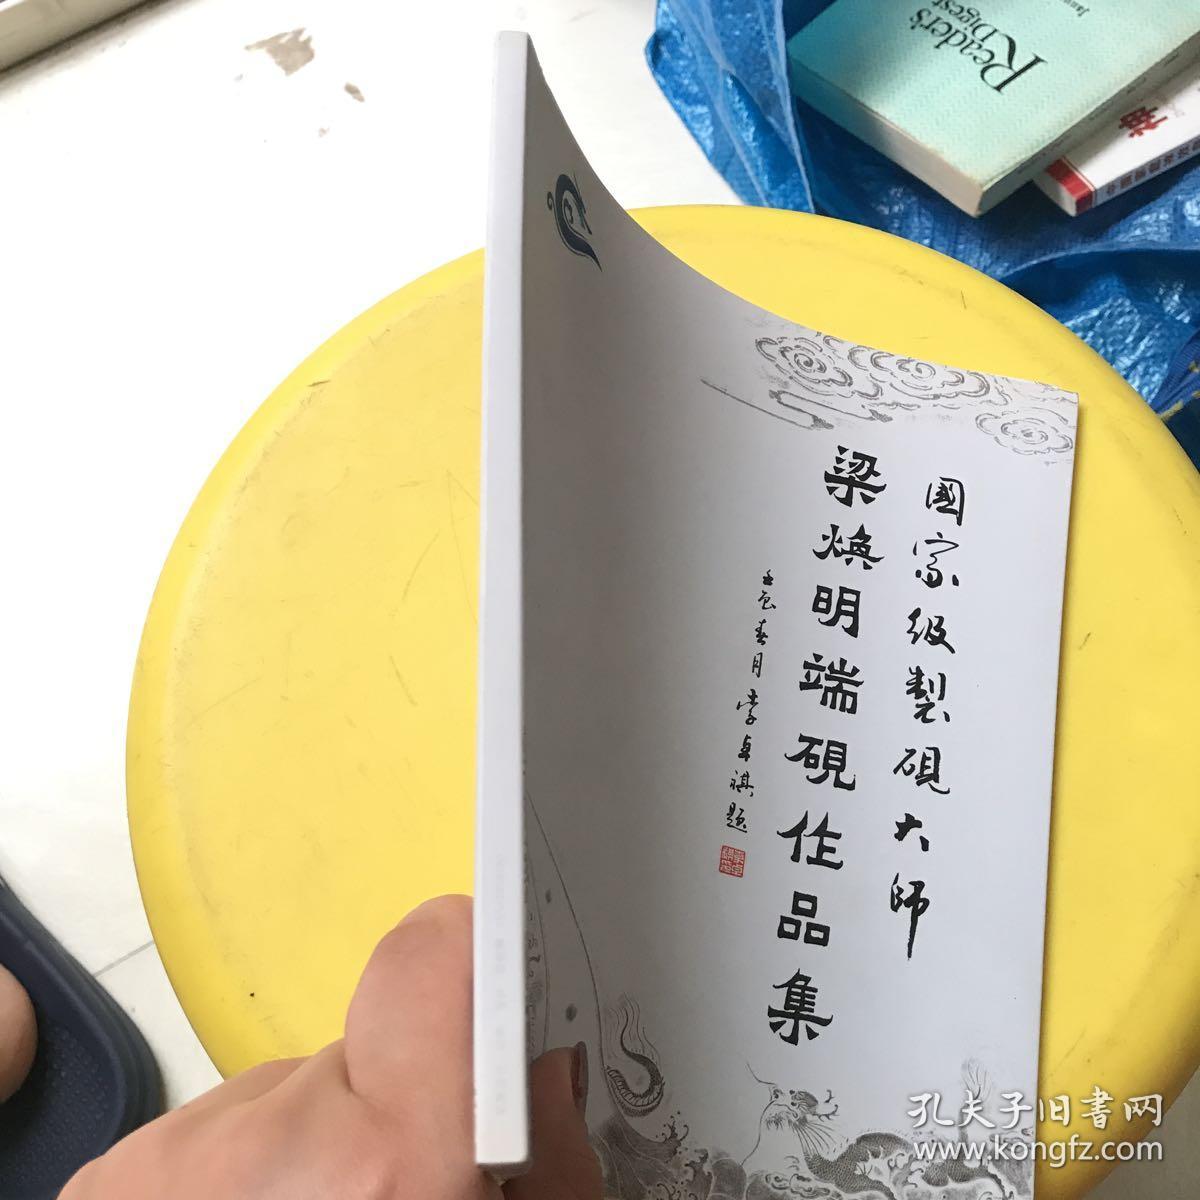 國家级製硯大师
梁焕明端硯作品集
壬辰春月李卓祺题
Reader's
Digest
神
孔夫子旧書网
www.kongfz.com